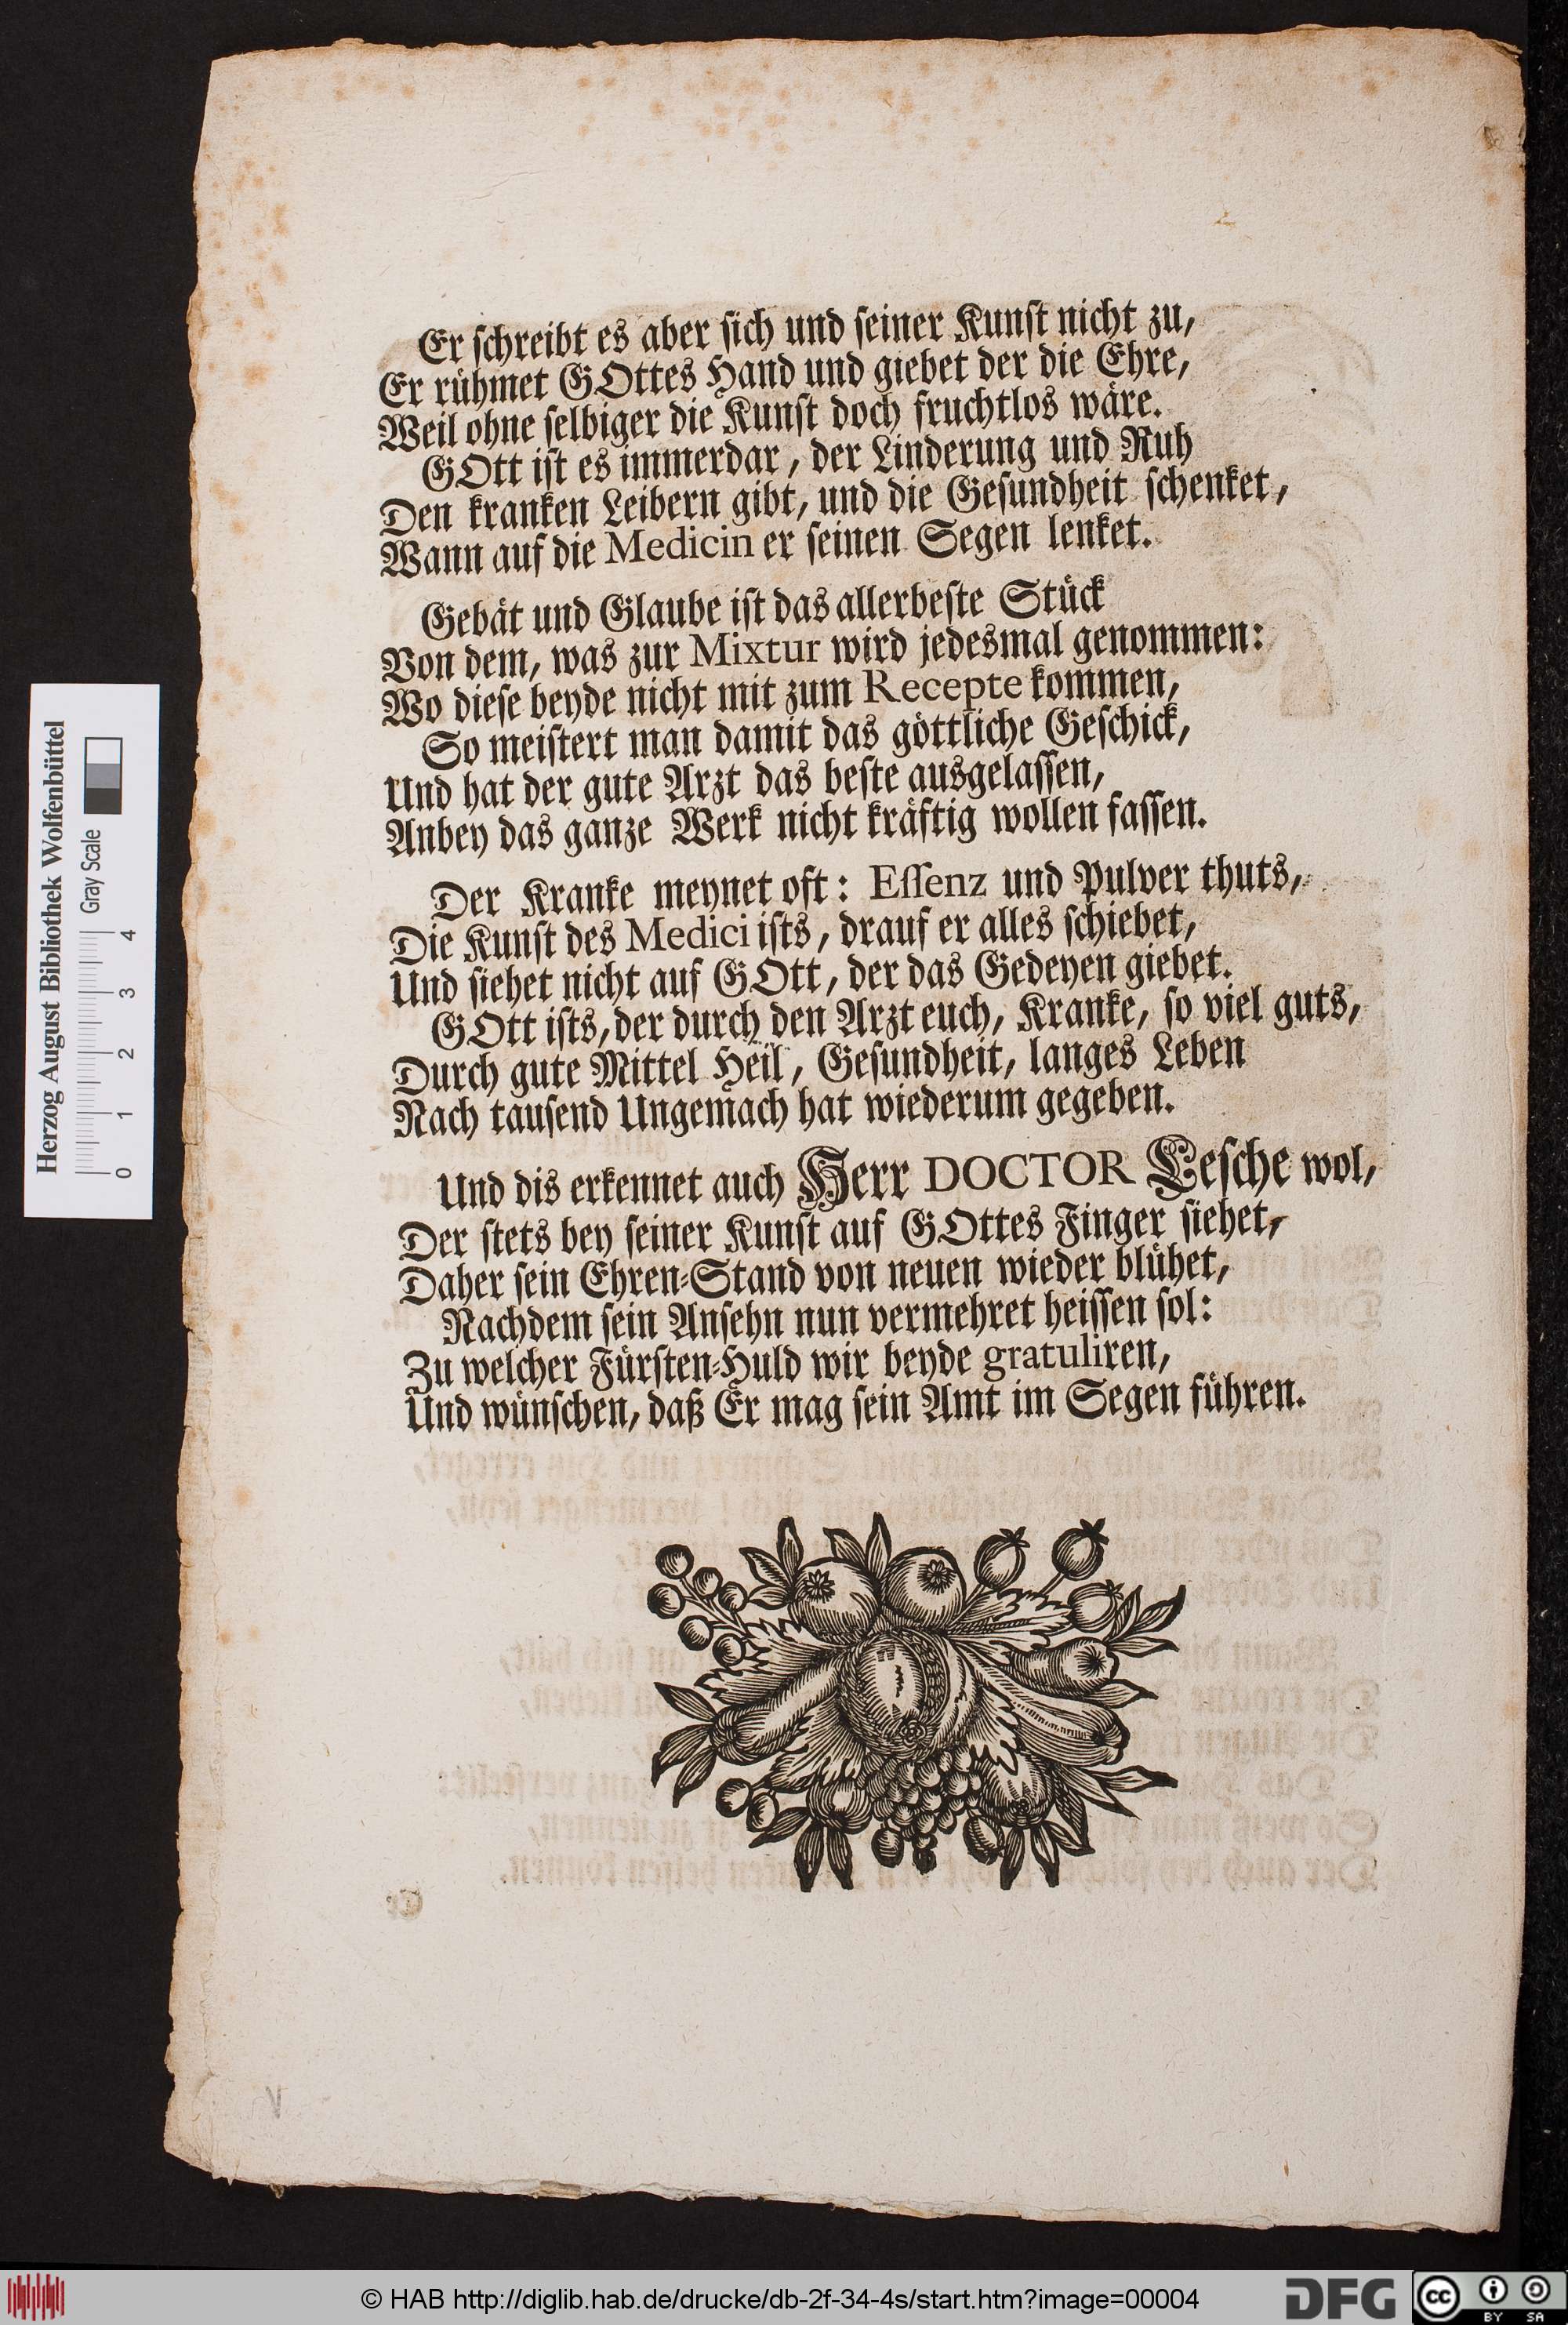 Er schreibt es aber sich und seiner Kunst nicht zu,
Er rühmet GOttes Hand und giebet der die Ehre,
Weil ohne selbiger die Kunst doch fruchtlos wäre.
GOtt ist es immerdar, der Linderung und Ruh
Den kranken Leibern gibt, und die Gesundheit schenket,
Wann auf die Medicin er seinen Segen lenket.
Gebät und Glaube ist das allerbeste Stück
Von dem, was zur Mixtur wird jedesmal genommen:
Wo diese beyde nicht mit zum Recepte kommen,
So meistert man damit das göttliche Geschick,
Und hat der gute Arzt das beste ausgelassen,
Anbey das ganze Werk nicht kräftig wollen fassen.
Der Kranke meynet oft: Essenz und Pulver thuts,
Die Kunst des Medici ists, drauf er alles schiebet,
Und siehet nicht auf GOtt, der das Gedeyen giebet.
GOtt ists, der durch den Arzt euch, Kranke, so viel guts,
Durch gute Mittel Heil, Gesundheit, langes Leben
Nach tausend Ungemach hat wiederum gegeben.
Und dis erkennet auch Herr DOCTOR Lesche wol,
Der stets bey seiner Kunst auf GOttes Finger siehet,
Daher sein Ehren-Stand von neuen wieder blühet,
Nachdem sein Ansehn nun vermehret heissen sol:
Zu welcher Fürsten-Huld wir beyde gratuliren,
Und wünschen, daß Er mag sein Amt im Segen führen.
Herzog August Bibliothek Wolfenbüttel
Gray Scale
0 1 2 3 4
© HAB http://diglib.hab.de/drucke/db-2f-34-4s/start.htm?image=00004
DFG
cc BY SA